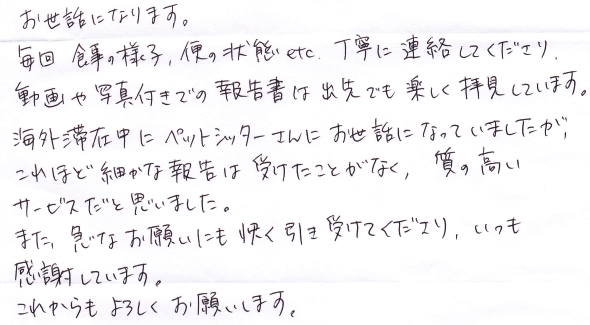 お世話になります。
毎回 食事の様子, 便の状態 etc. 丁寧に連絡してくださり,
動画や写真付きでの報告書は出先でも楽しく拝見しています。
海外滞在中にペットシッターさんにお世話になっていましたが,
これほど細かな報告は受けたことがなく, 質の高い
サービスだと思いました。
また, 急なお願いにも快く引き受けてくださり, いつも
感謝しています。
これからもよろしくお願いします。